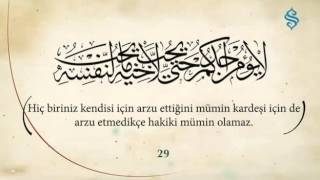 لا يؤمن أحدكم حتى يحب لأخيه ما يحب لنفسه
Hiç biriniz kendisi için arzu ettiğini mümin kardeşi için de
arzu etmedikçe hakiki mümin olamaz.
29